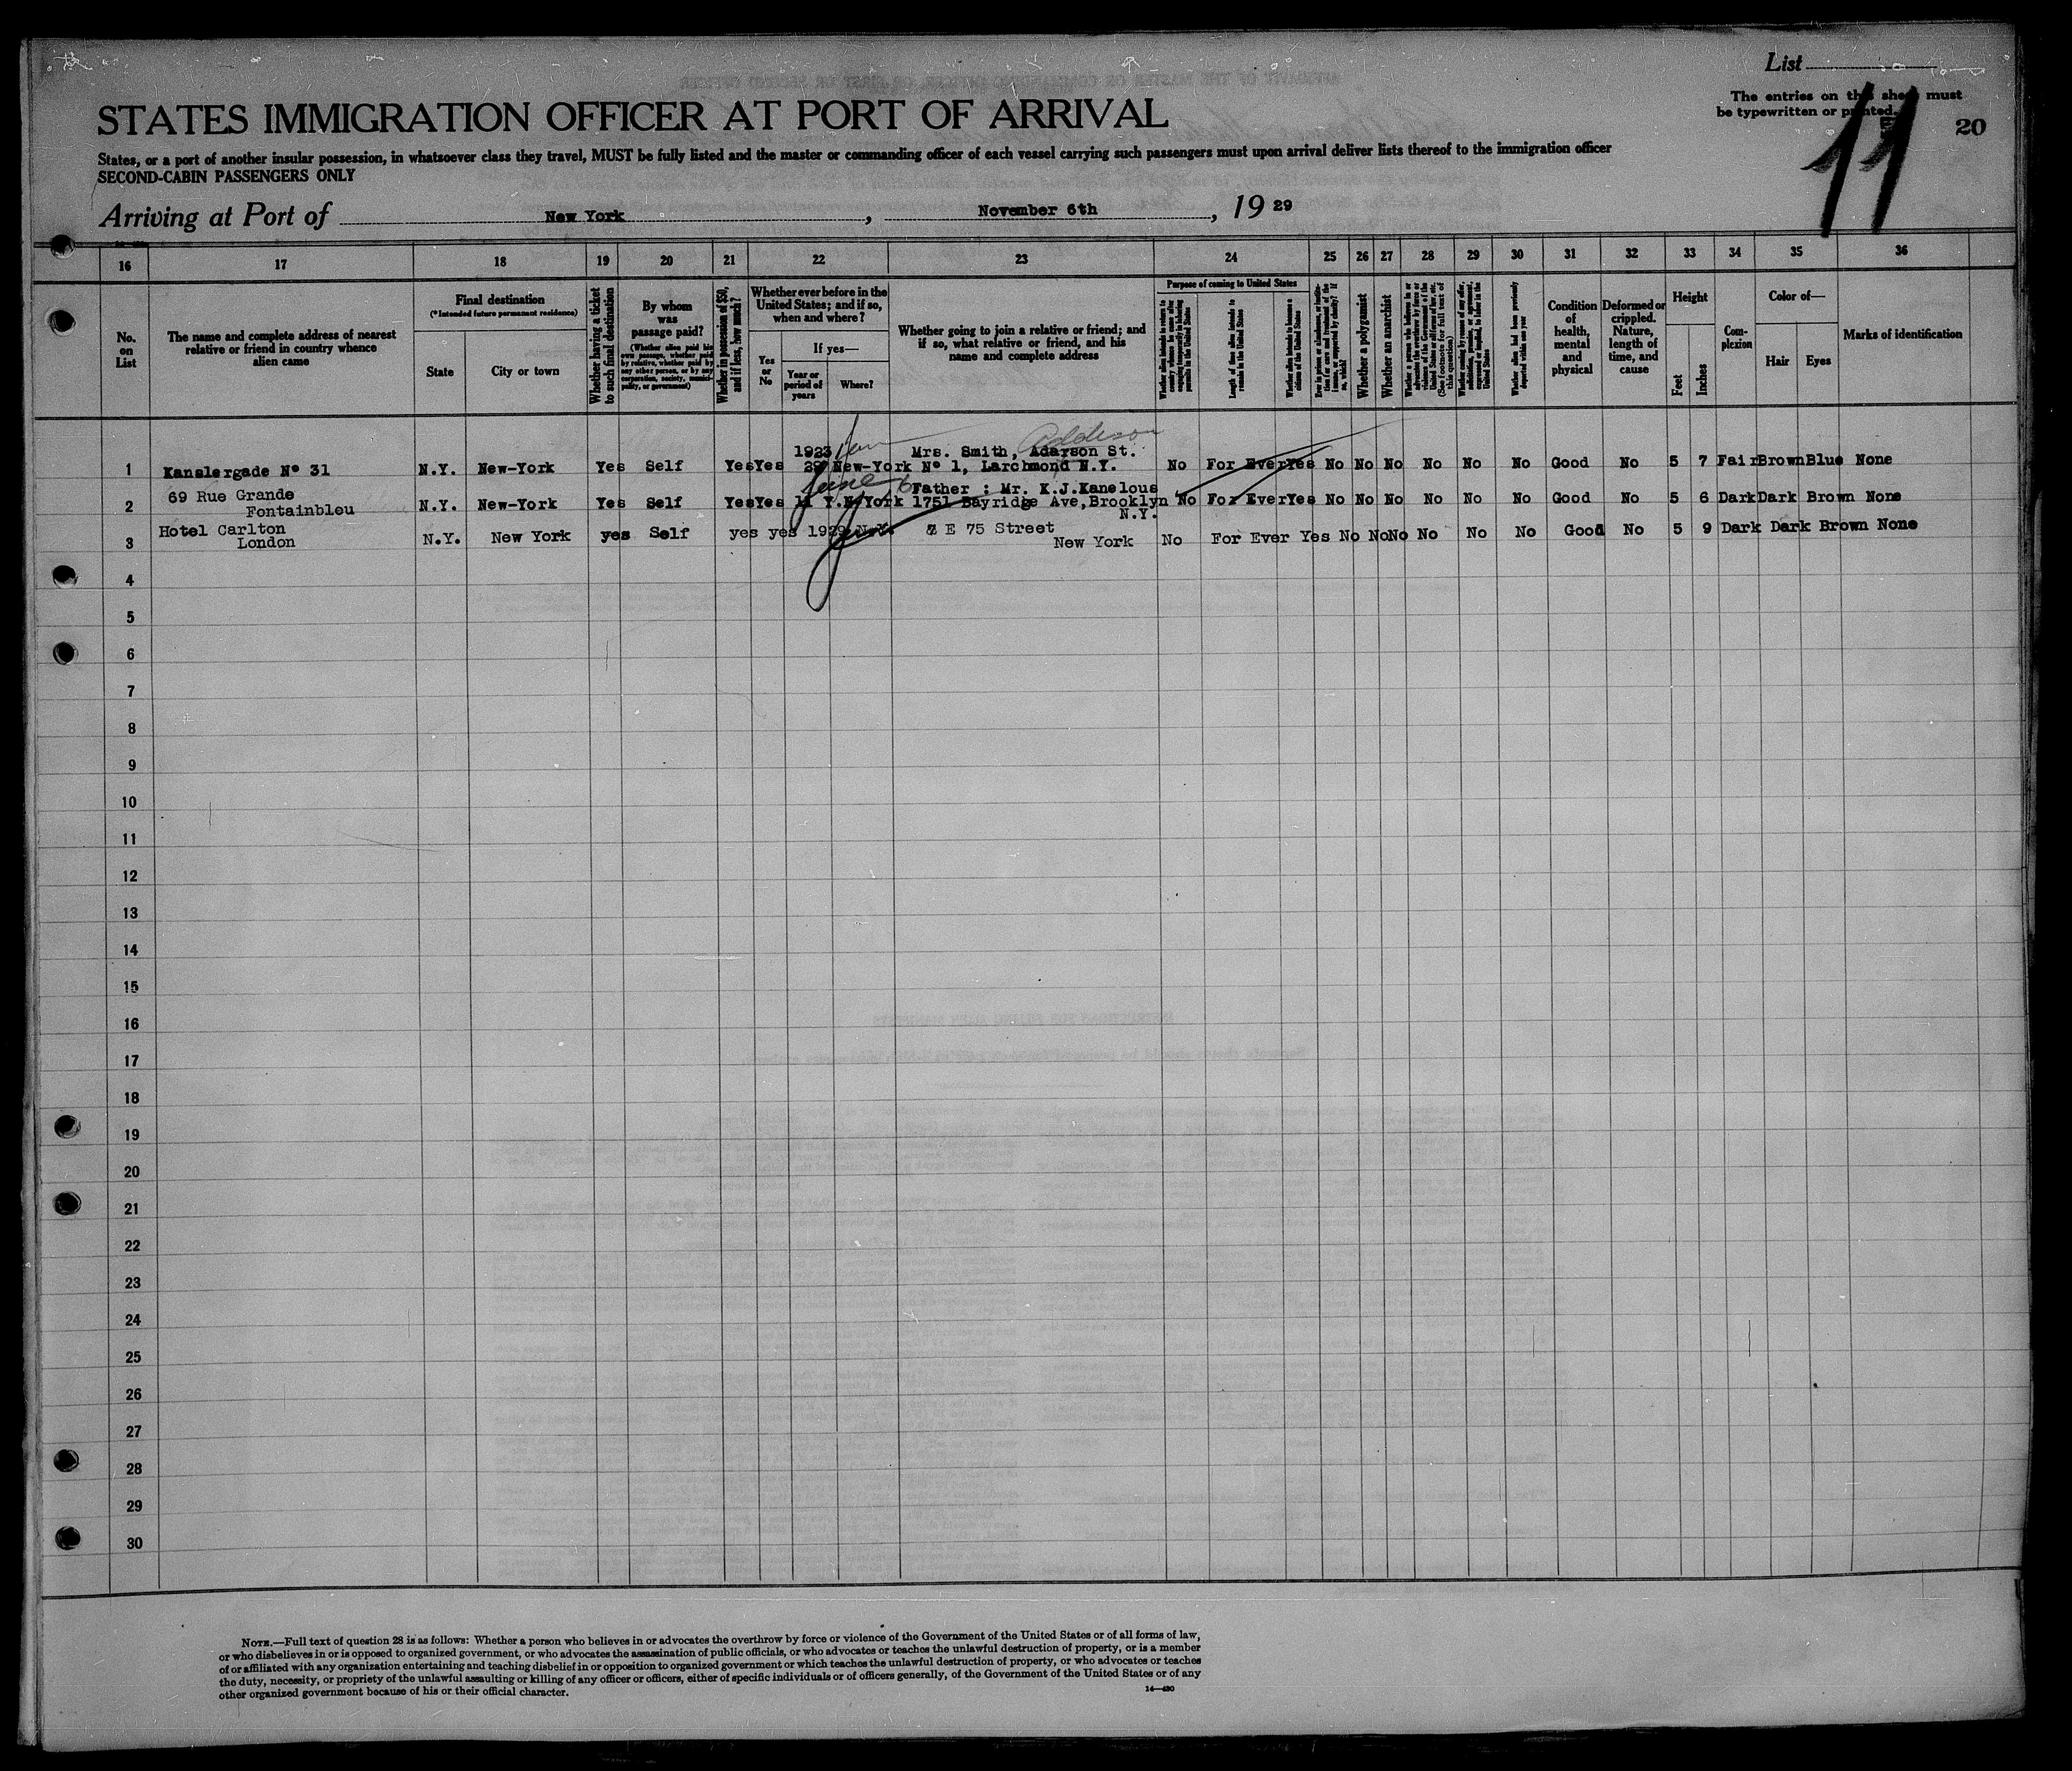 List
The entries on this sheet must
be typewritten or printed.
11
20
STATES IMMIGRATION OFFICER AT PORT OF ARRIVAL
States, or a port of another insular possession, in whatsoever class they travel, MUST be fully listed and the master or commanding officer of each vessel carrying such passengers must upon arrival deliver lists thereof to the immigration officer
SECOND-CABIN PASSENGERS ONLY
Arriving at Port of New York, November 6th, 19 29
16 17 18 19 20 21 22 23 24 25 26 27 28 29 30 31 32 33 34 35 36
No. on List
The name and complete address of nearest relative or friend in country whence alien came
Final destination
(*Intended future permanent residence)
State
City or town
Whether having a ticket to such final destination
By whom was passage paid?
(Whether alien paid his own passage, whether paid by relative, whether paid by any other person, or by any corporation, society, municipality, or government)
Whether in possession of $50, and if less, how much?
Whether ever before in the United States; and if so, when and where?
Yes or No
If yes—
Year or period of years
Where?
Whether going to join a relative or friend; and if so, what relative or friend, and his name and complete address
Purpose of coming to United States
Length of time alien intends to remain in the United States
Whether alien intends to become a citizen of the United States
Whether a polygamist
Whether an anarchist
Whether alien had been previously deported within one year
Condition of health, mental and physical
Deformed or crippled. Nature, length of time, and cause
Height
Feet
Inches
Complexion
Color of—
Hair
Eyes
Marks of identification
1923 Mrs. Smith, Adarson St. Addison
1 Kanslergade Nº 31 N.Y. New-York Yes Self Yes Yes 29 New-York Nº 1, Larchmond N.Y. No For Ever Yes No No No No No No Good No 5 7 Fair Brown Blue None
69 Rue Grande June Father : Mr. K.J.Kanelous
2 Fontainbleu N.Y. New-York Yes Self Yes Yes 11 Y. N.York 1751 Bayridge Ave, Brooklyn No For Ever Yes No No No No No No Good No 5 6 Dark Dark Brown None
N.Y.
Hotel Carlton E 75 Street
3 London N.Y. New York yes Self yes yes 1929 N.Y. New York No For Ever Yes No No No No No No Good No 5 9 Dark Dark Brown None
4
5
6
7
8
9
10
11
12
13
14
15
16
17
18
19
20
21
22
23
24
25
26
27
28
29
30
NOTE.—Full text of question 28 is as follows: Whether a person who believes in or advocates the overthrow by force or violence of the Government of the United States or of all forms of law,
or who disbelieves in or is opposed to organized government, or who advocates the assassination of public officials, or who advocates or teaches the unlawful destruction of property, or is a member
of or affiliated with any organization entertaining and teaching disbelief in or opposition to organized government or which teaches the unlawful destruction of property, or who advocates or teaches
the duty, necessity, or propriety of the unlawful assaulting or killing of any officer or officers, either of specific individuals or of officers generally, of the Government of the United States or of any
other organized government because of his or their official character.
14—430